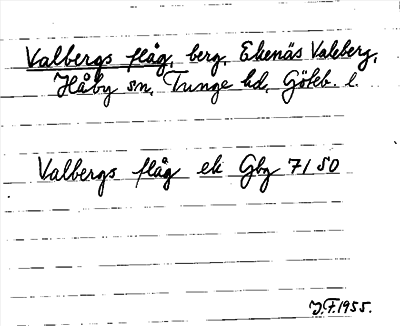 Valbergs flåg, berg, Ekenäs Valeberg,
Håby sn, Tunge hd, Göteb. l.
Valbergs flåg ek Gbg 7150
J.F. 1955.